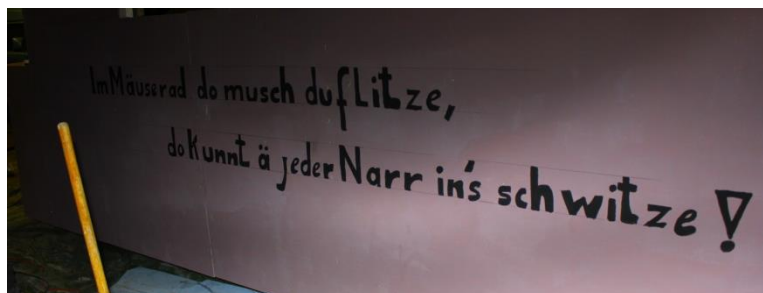 Im Mäuserad do musch du flitze,
do kunnt ä jeder Narr in's schwitze!